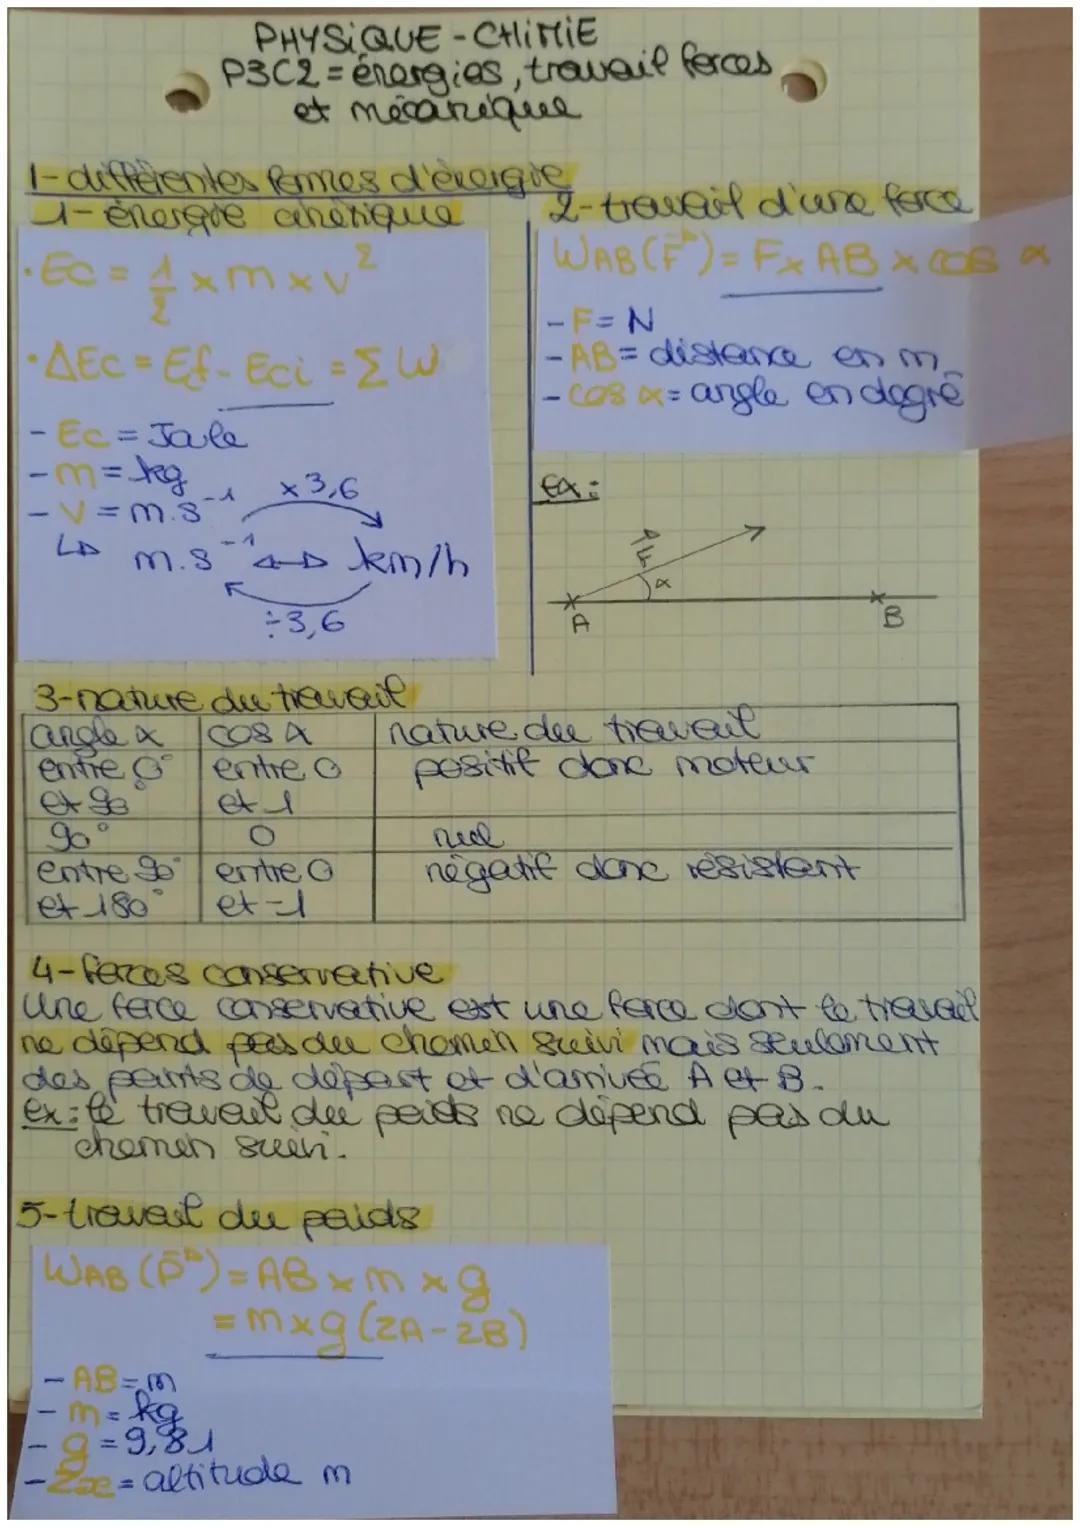 PHYSIQUE - CHIMIE
P3C2 = énergies, travail forces
et mécanique
1- différentes formes d'énergie
1- énergie cinétique
• Ec = 1/2 x m x v²
• ΔEc = Ef - Eci = Σ W
- Ec = Joule
- m = kg
- V = m.s⁻¹
x3,6
↳ m.s⁻¹ ↔ km/h
÷3,6
2- travail d'une force
WAB (F⃗) = F x AB x cos α
- F = N
- AB = distance en m
- cos α = angle en degré
ex :
F⃗
α
A
B
3- nature du travail
angle α | cos α | nature du travail
entre 0° et 90° | entre 0 et 1 | positif donc moteur
90° | 0 | nul
entre 90° et 180° | entre 0 et -1 | négatif donc résistant
4- forces conservative
Une force conservative est une force dont le travail
ne dépend pas du chemin suivi mais seulement
des points de départ et d'arrivée A et B.
ex : le travail du poids ne dépend pas du
chemin suivi.
5- travail du poids
WAB (P⃗) = AB x m x g
= m x g (zA - zB)
- AB = m
- m = kg
- g = 9,81
- Zx = altitude m